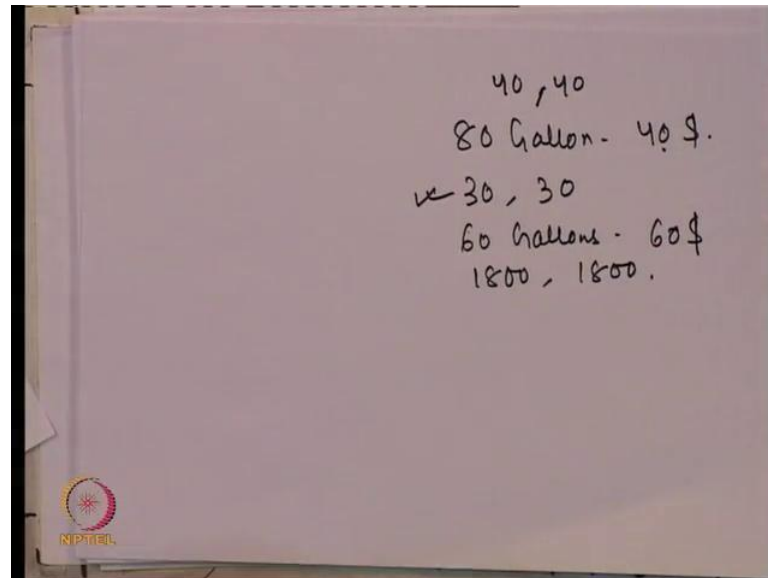 40, 40
80 Gallon - 40 $.
30, 30
60 Gallons - 60 $
1800, 1800.
NPTEL